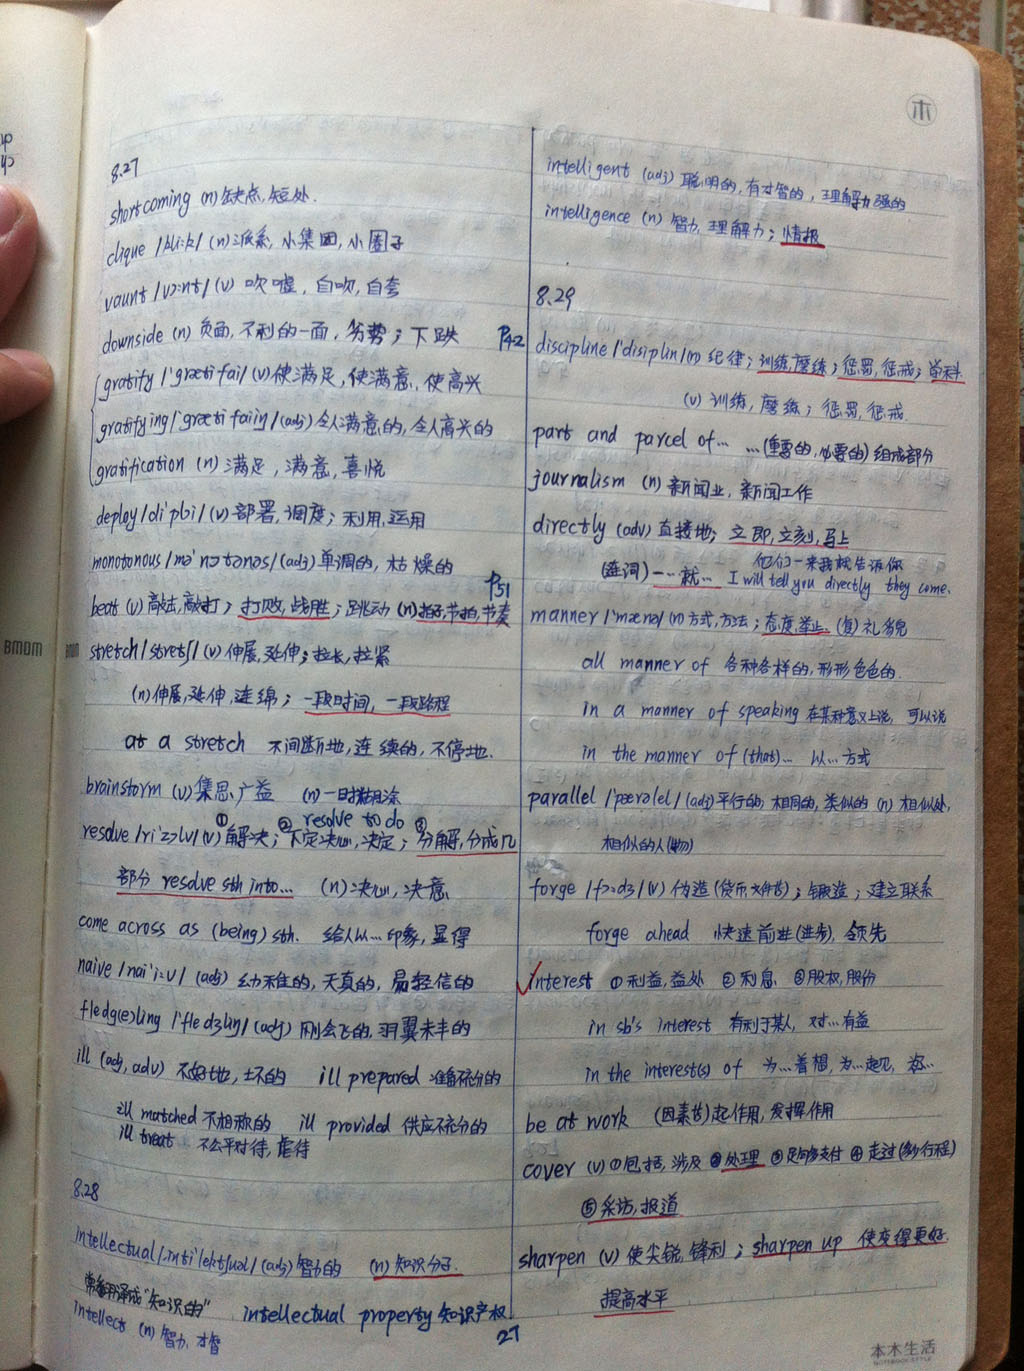 8.27
shortcoming (n) 缺点,短处.
clique /kli:k/ (n)派系,小集团,小圈子
vaunt /vɔ:nt/ (v) 吹嘘,自吹,自夸
downside (n) 负面,不利的一面,劣势;下跌
gratify /'grætifai/ (v)使满足,使满意,使高兴
gratifying /'grætifaiiŋ/ (adj) 令人满意的,令人高兴的
gratification (n) 满足,满意,喜悦
deploy /di'plɔi/ (v) 部署,调度;利用,运用
monotonous /mə'nɔtənəs/ (adj)单调的,枯燥的
P51
beat (v) 敲击,敲打;打败,战胜;跳动 (n)拍子,节拍,节奏
stretch /stretʃ/ (v) 伸展,延伸;拉长,拉紧
(n)伸展,延伸,连绵;一段时间,一段路程
at a stretch 不间断地,连续的,不停地.
brainstorm (v)集思广益 (n)一时糊涂
① ② resolve to do ③
resolve /ri'zɔlv/ (v) 解决;下定决心,决定;分解,分成几
部分 resolve sth into... (n):决心,决意
come across as (being) sth. 给人以...印象,显得
naive /nai'i:v/ (adj) 幼稚的,天真的,易轻信的
fledg(e)ling /'fledʒliŋ/ (adj) 刚会飞的,羽翼未丰的
ill (adj, adv) 不好地,坏的 ill prepared 准备不充分的
ill matched 不相称的 ill provided 供应不充分的
ill treat 不公平对待,虐待
8.28
intellectual /.inti'lektʃuəl/ (adj) 智力的 (n) 知识分子.
常翻译成"知识的" intellectual property 知识产权
intellect (n) 智力,才智
intelligent (adj) 聪明的,有才智的,理解力强的
intelligence (n) 智力,理解力;情报
8.29
P42 discipline /'disiplin/ (n) 纪律;训练,磨练;惩罚,惩戒;学科
(v) 训练,磨练;惩罚,惩戒.
part and parcel of... ...(重要的,必要的)组成部分
journalism (n) 新闻业,新闻工作
directly (adv) 直接地;立即,立刻,马上
他们一来我就告诉你
(连词) 一...就... I will tell you directly they come.
manner /'mænə/ (n)方式,方法;态度,举止.(复)礼貌
all manner of 各种各样的,形形色色的.
in a manner of speaking 在某种意义上说,可以说
in the manner of (that)... 以...方式
parallel /'pærəlel/ (adj)平行的,相同的,类似的 (n) 相似处,
相似的人(物)
forge /fɔ:dʒ/ (v) 伪造(货币,文件等);锻造;建立联系
forge ahead 快速前进(进步),领先
interest ①利益,益处 ②利息 ③股权,股份
in sb's interest 有利于某人,对...有益
in the interest(s) of 为...着想,为...起见,
be at work (因素等)起作用,发挥作用
cover (v) ①包括,涉及 ②处理 ③足够支付 ④走过(多少行程)
⑤采访,报道
sharpen (v) 使尖锐,锋利;sharpen up 使变得更好
提高水平
27
BMDM
本
本木生活
NOTEBOOK STYLE